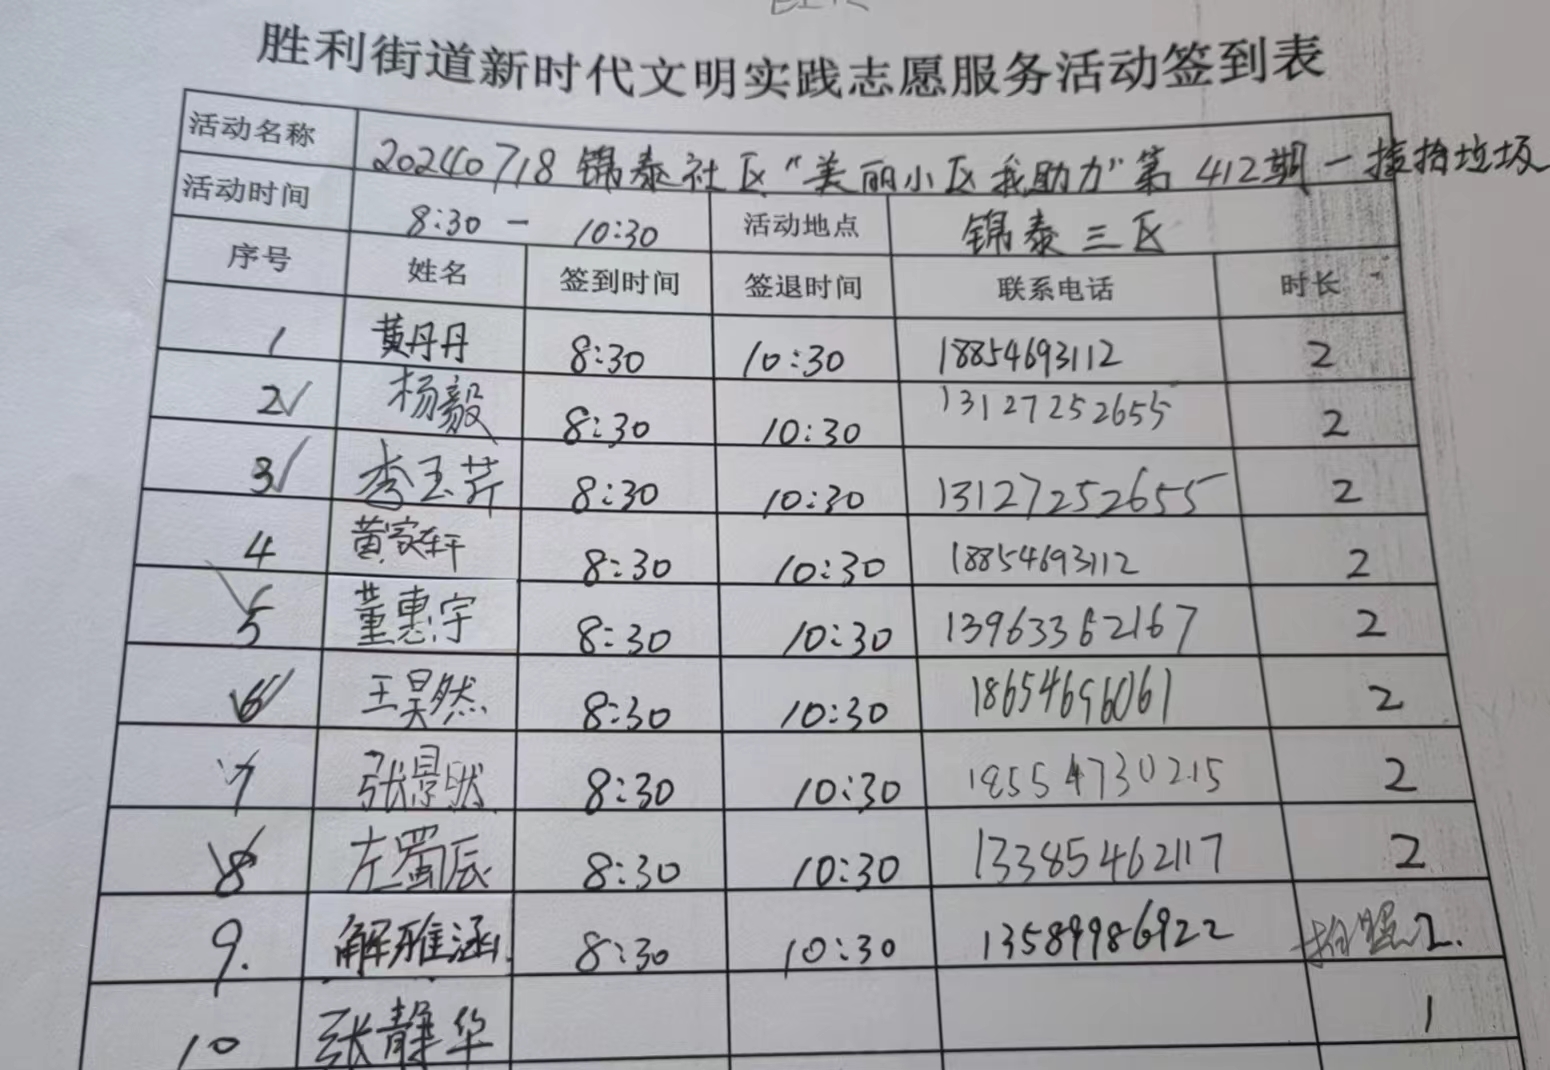 胜利街道新时代文明实践志愿服务活动签到表
活动名称 20240718 锦泰社区“美丽小区我助力”第412期—捡拾垃圾
活动时间 8:30 — 10:30 活动地点 锦泰三区
序号 姓名 签到时间 签退时间 联系电话 时长
1 黄丹丹 8:30 10:30 18854693112 2
2 杨毅 8:30 10:30 13127252655 2
3 李玉芹 8:30 10:30 13127252655 2
4 黄家轩 8:30 10:30 18854693112 2
5 董惠宇 8:30 10:30 13963362167 2
6 王昊然 8:30 10:30 18654696061 2
7 张景 8:30 10:30 18554730215 2
8 左蜀辰 8:30 10:30 13385462117 2
9. 解雅涵 8:30 10:30 13589986922 2.
10 张静华 1